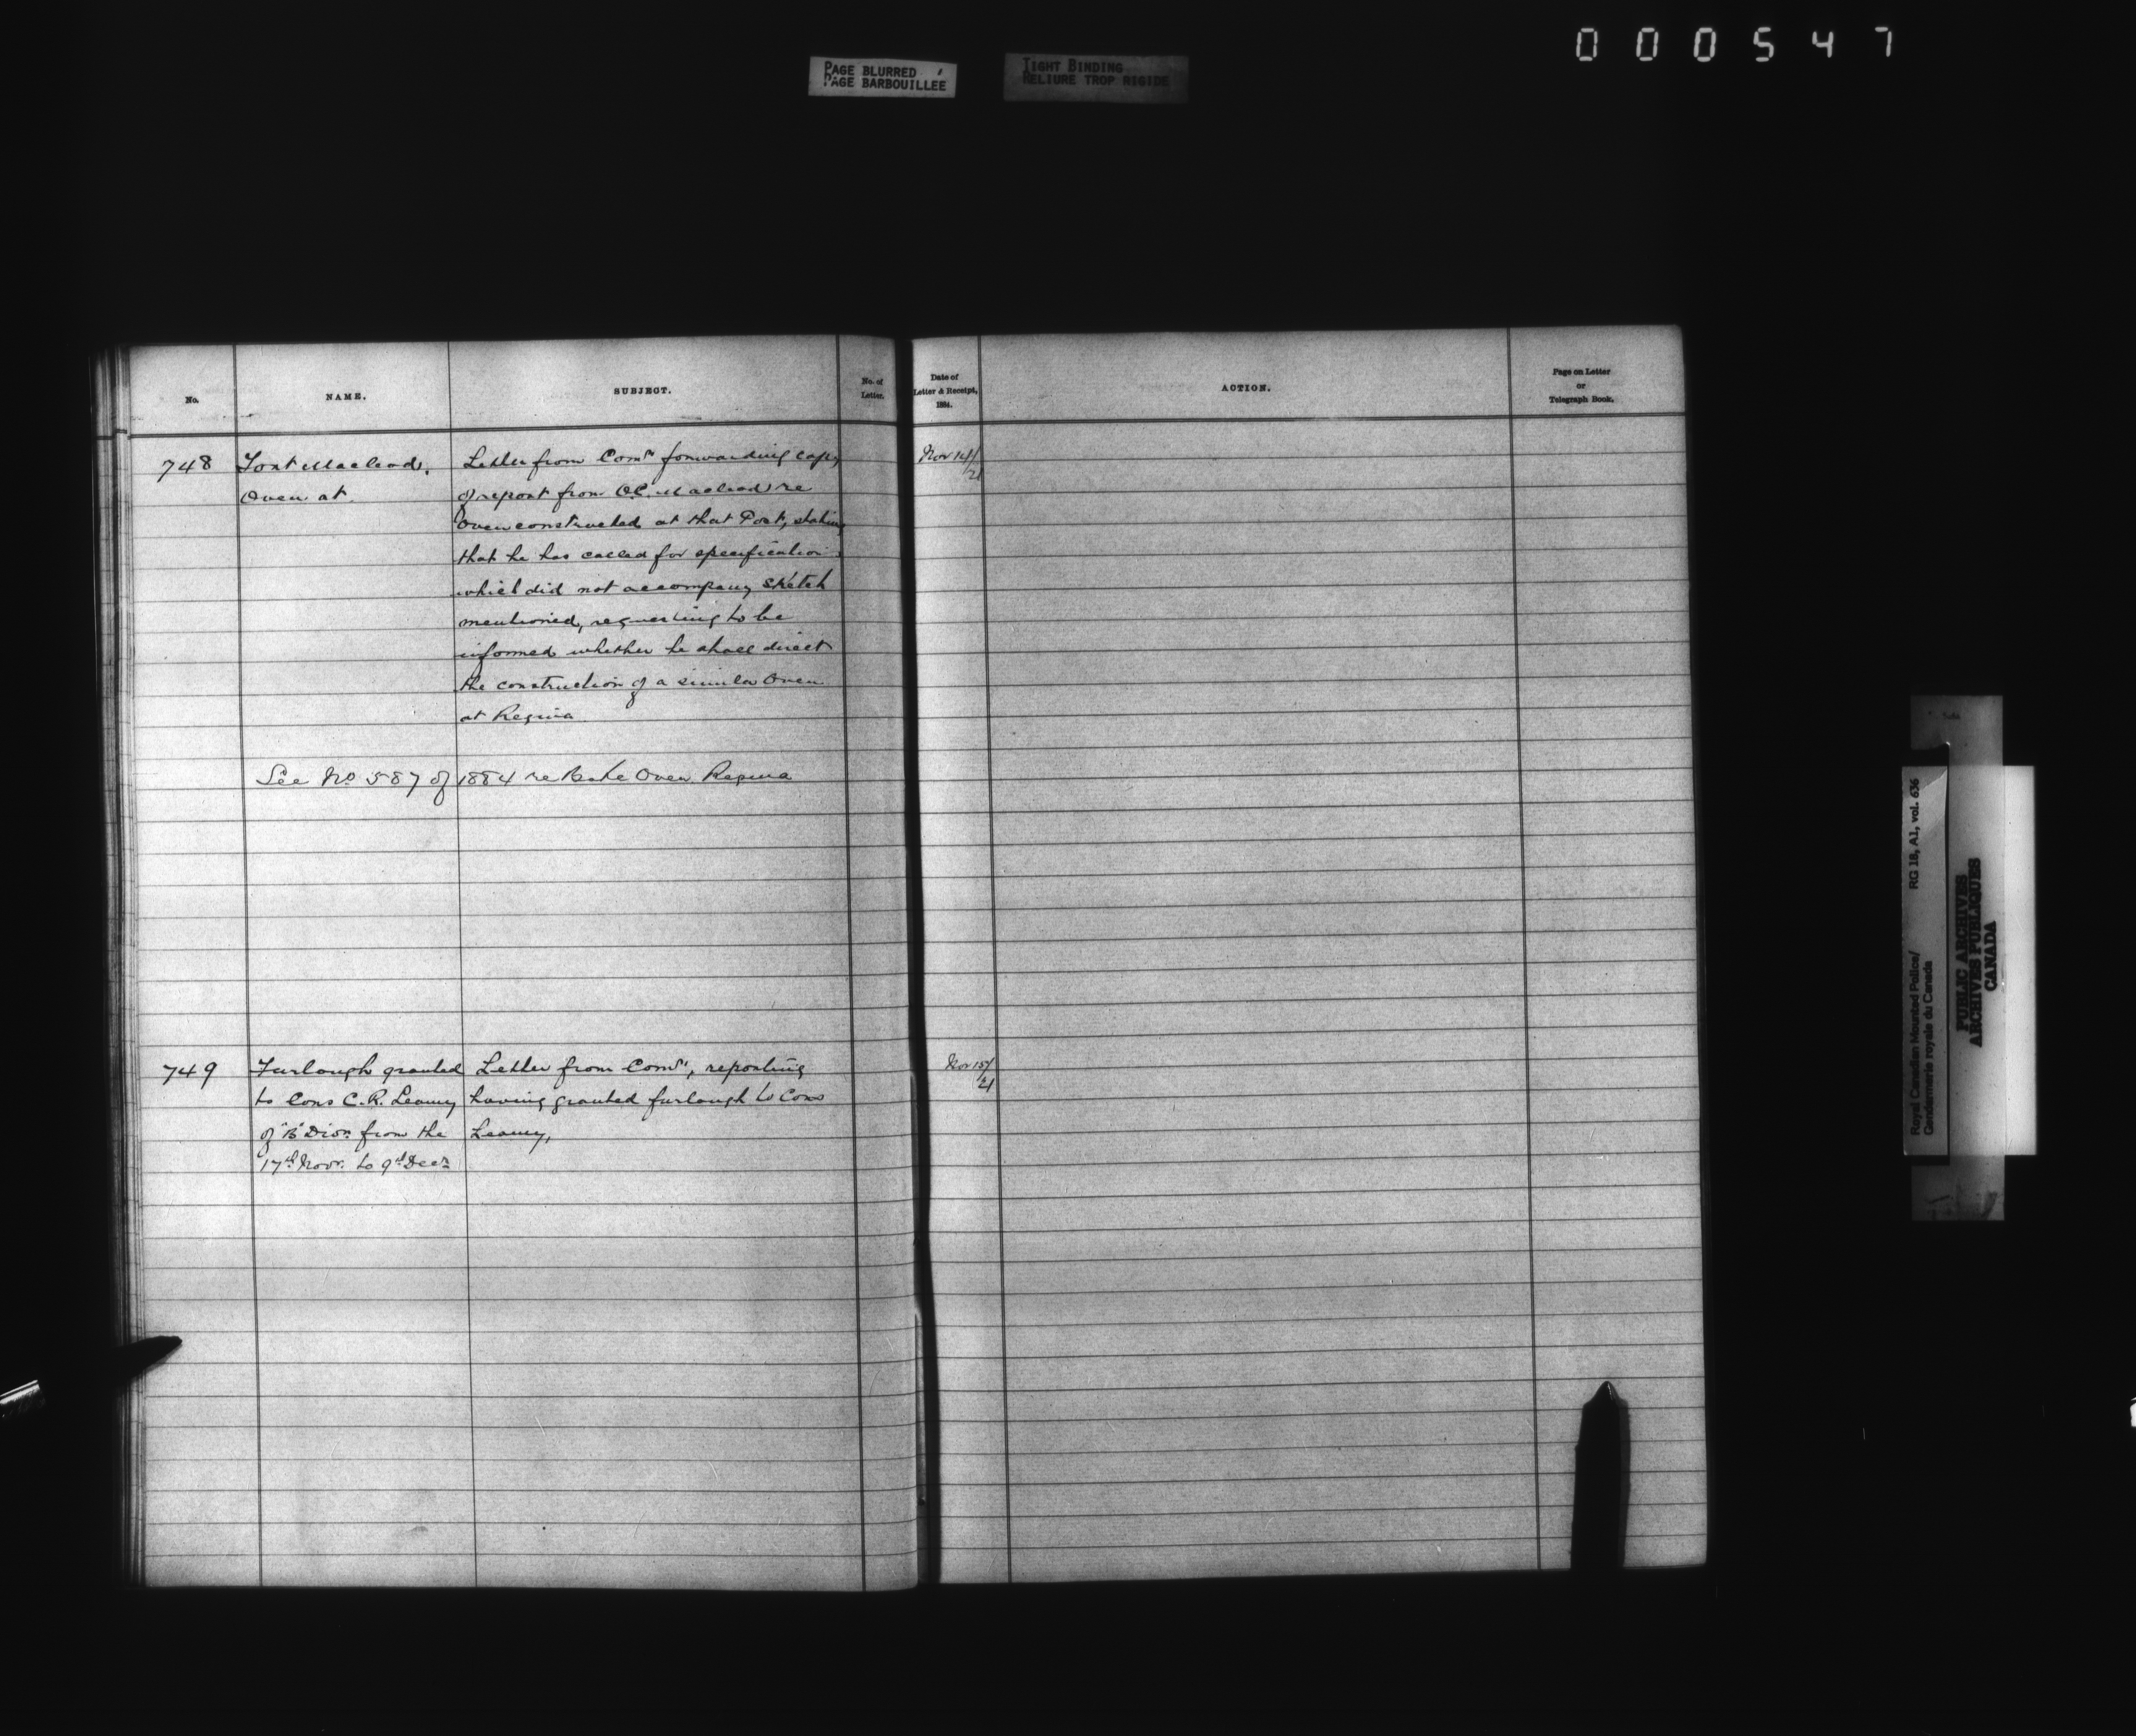 000547
PAGE BLURRED
PAGE BARBOUILLEE
TIGHT BINDING
RELIURE TROP RIGIDE
No.
NAME.
SUBJECT.
No. of
Letter.
Date of
Letter & Receipt,
1884.
ACTION.
Page on Letter
or
Telegraph Book.
748
Fort Macleod,
Oven at
Letter from Comr forwarding copy
of report from O.C. Macleod re
Oven constructed at that Post, stating
that he has called for specification
which did not accompany sketch
mentioned, requesting to be
informed whether he shall direct
the construction of a similar Oven
at Regina
Nov 14/
21
See No 587 of 1884 re Bake Oven Regina
749
Furlough granted
to Cons C. R. Leamy
of "B" Divn from the
17th Novr. to 9th Decr
Letter from Comr, reporting
having granted furlough to Cons
Leamy,
Nov 15/
21
Royal Canadian Mounted Police/
Gendarmerie royale du Canada
RG 18, A1, vol. 636
PUBLIC ARCHIVES
ARCHIVES PUBLIQUES
CANADA